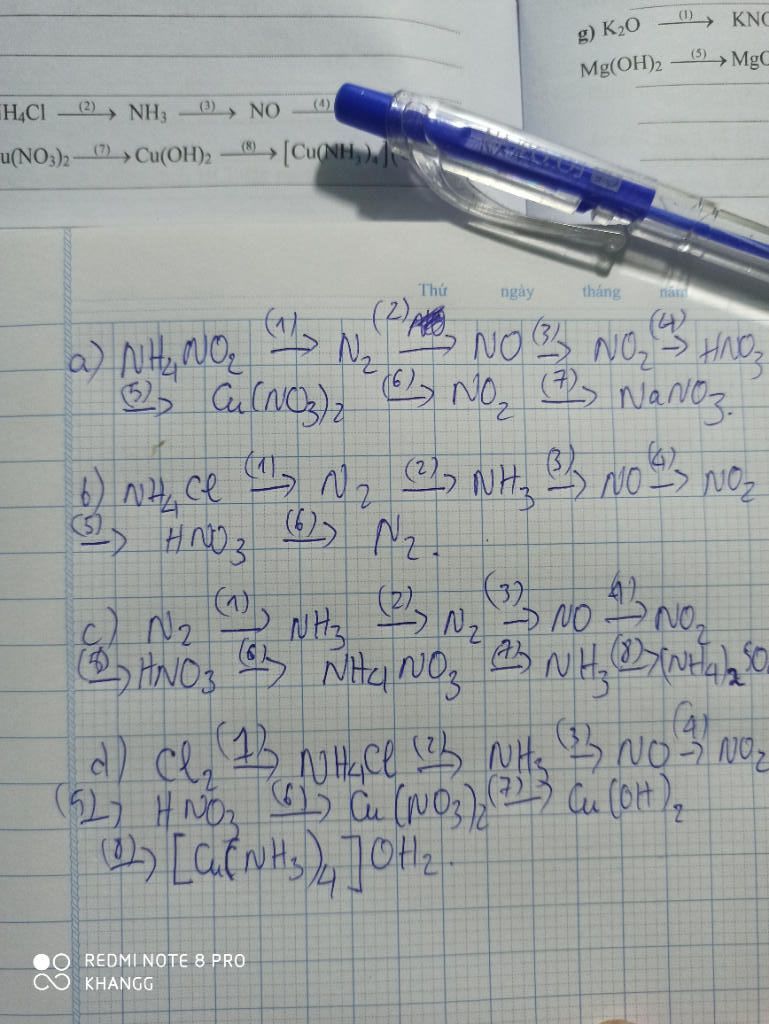 g) K₂O —(1)→ KNO
Mg(OH)₂ —(5)→ MgO
H₄Cl —(2)→ NH₃ —(3)→ NO —(4)→
u(NO₃)₂ —(7)→ Cu(OH)₂ —(8)→ [Cu(NH₃)₄](
Thứ ngày tháng năm
a) NH₄NO₂ —(1)→ N₂ —(2)→ NO —(3)→ NO₂ —(4)→ HNO₃
—(5)→ Cu(NO₃)₂ —(6)→ NO₂ —(7)→ NaNO₃.
b) NH₄Cl —(1)→ N₂ —(2)→ NH₃ —(3)→ NO —(4)→ NO₂
—(5)→ HNO₃ —(6)→ N₂.
c) N₂ —(1)→ NH₃ —(2)→ N₂ —(3)→ NO —(4)→ NO₂
—(5)→ HNO₃ —(6)→ NH₄NO₃ —(7)→ NH₃ —(8)→ (NH₄)₂SO₄
d) Cl₂ —(1)→ NH₄Cl —(2)→ NH₃ —(3)→ NO —(4)→ NO₂
(5)→ HNO₃ —(6)→ Cu(NO₃)₂ —(7)→ Cu(OH)₂
—(8)→ [Cu(NH₃)₄]OH₂.
REDMI NOTE 8 PRO
KHANGG